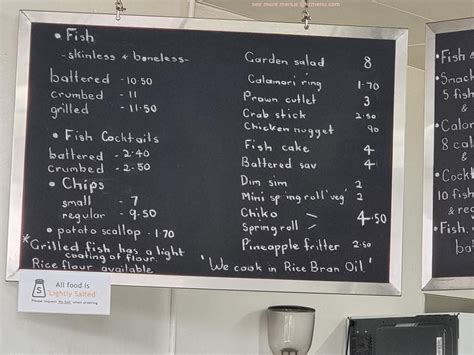 see more menus sirmenu.com
• Fish
-skinless & boneless-
battered - 10.50
crumbed - 11
grilled - 11.50
• Fish Cocktails
battered - 2.40
crumbed - 2.50
• Chips
small - 7
regular - 9.50
• potato scallop - 1.70
*Grilled fish has a light
coating of flour.
Rice flour available
Garden salad 8
Calamari ring 1.70
Prawn cutlet 3
Crab stick 2.50
Chicken nugget 90
Fish cake 4
Battered sav 4
Dim sim 2
Mini spring roll 'veg' 2
Chiko
Spring roll 4.50
Pineapple fritter 2.50
"We cook in Rice Bran Oil."
• Fish &
• Snack
5 fish
&
• Calam
8 cal
&
• Cockt
10 fish
& reg
• Fish,
All food is
Lightly Salted
Please request No Salt when ordering
S